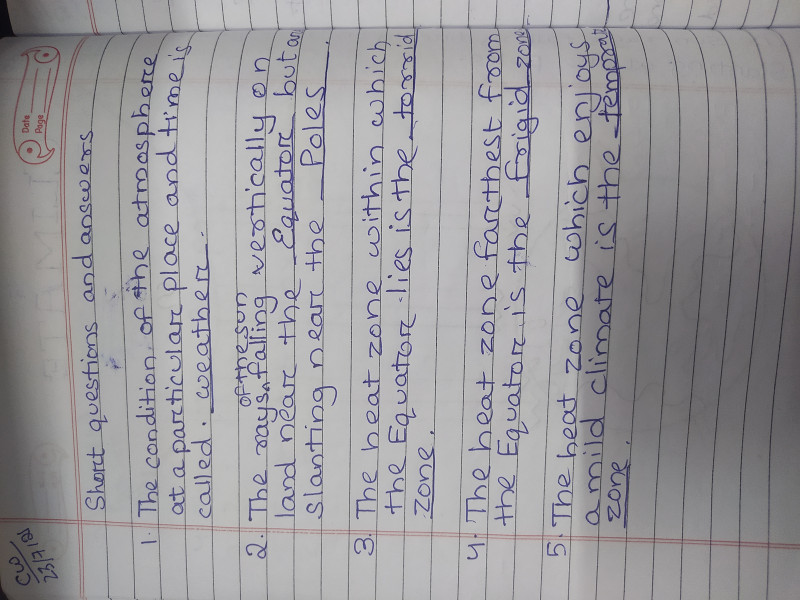 CW
23/7/21
Date
Page
Short questions and answers
1. The condition of the atmosphere
at a particular place and time is
called weather.
of the sun
2. The rays falling vertically on
land near the Equator but are
slanting near the Poles.
3. The heat zone within which
the Equator lies is the torrid
zone.
4. The heat zone farthest from
the Equator is the frigid zone.
5. The heat zone which enjoys
a mild climate is the temprate
zone.